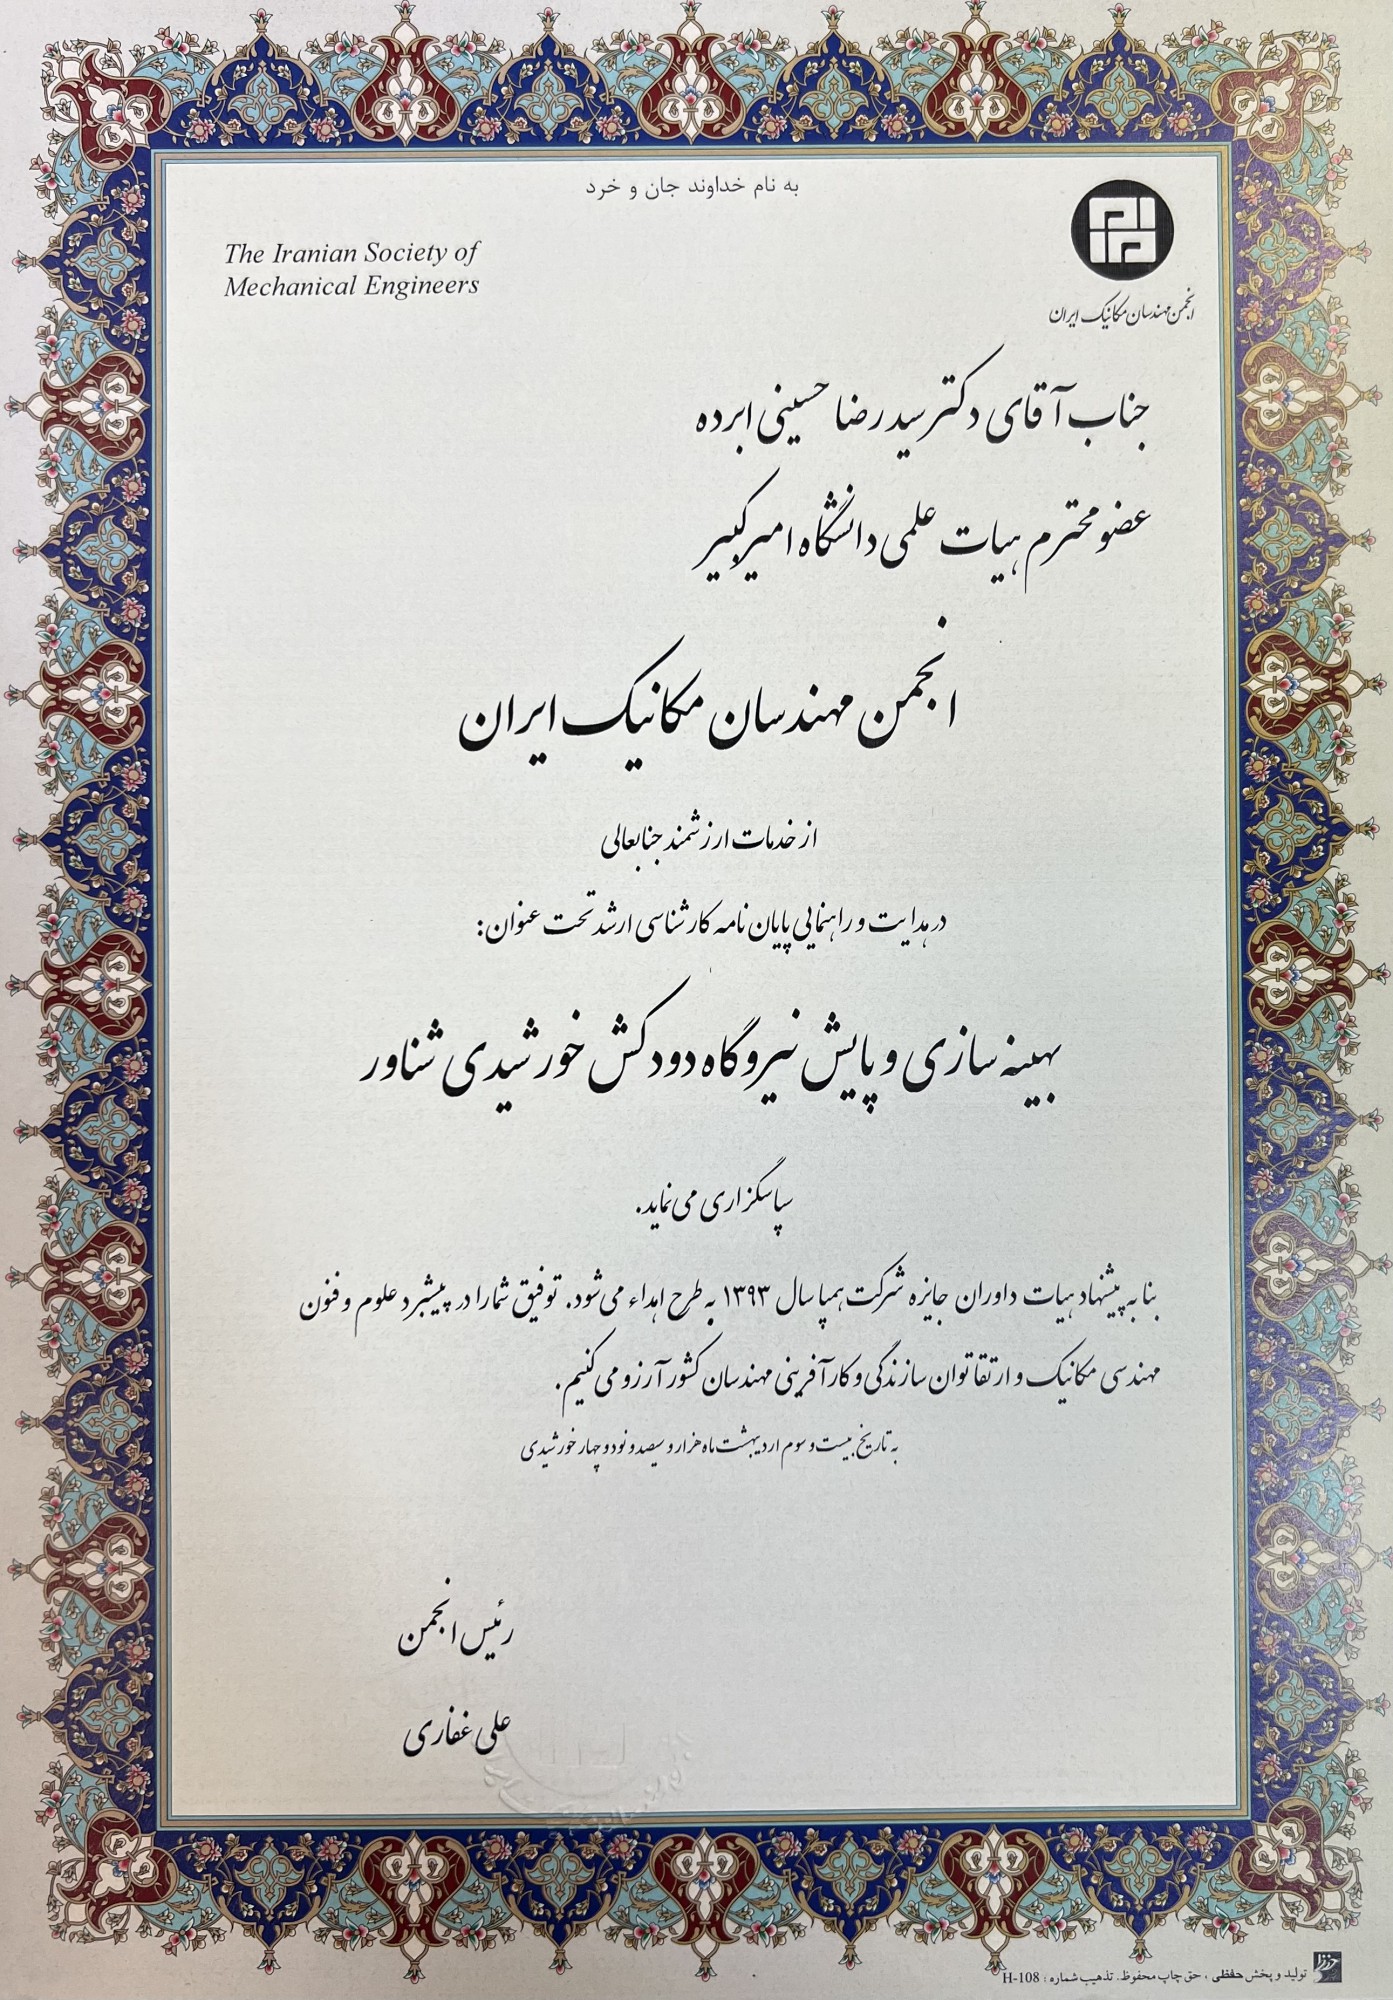 به نام خداوند جان و خرد
The Iranian Society of
Mechanical Engineers
انجمن مهندسان مکانیک ایران
جناب آقای دکتر سید رضا حسینی ابرده
عضو محترم هیات علمی دانشگاه امیرکبیر
انجمن مهندسان مکانیک ایران
از خدمات ارزشمند جنابعالی
در هدایت و راهنمایی پایان نامه کارشناسی ارشد تحت عنوان:
بهینه سازی و پایش نیروگاه دودکش خورشیدی شناور
سپاسگزاری می نماید.
بنا به پیشنهاد هیات داوران جایزه شرکت همپا سال ۱۳۹۳ به طرح اهداء می شود. توفیق شما را در پیشبرد علوم و فنون
مهندسی مکانیک و ارتقا توان سازندگی و کارآفرینی مهندسان کشور آرزو می کنیم.
به تاریخ بیست و سوم اردیبهشت ماه هزار و سیصد و نود و چهار خورشیدی
رئیس انجمن
علی غفاری
تولید و پخش حفظی ، حق چاپ محفوظ. تذهیب شماره : H-108